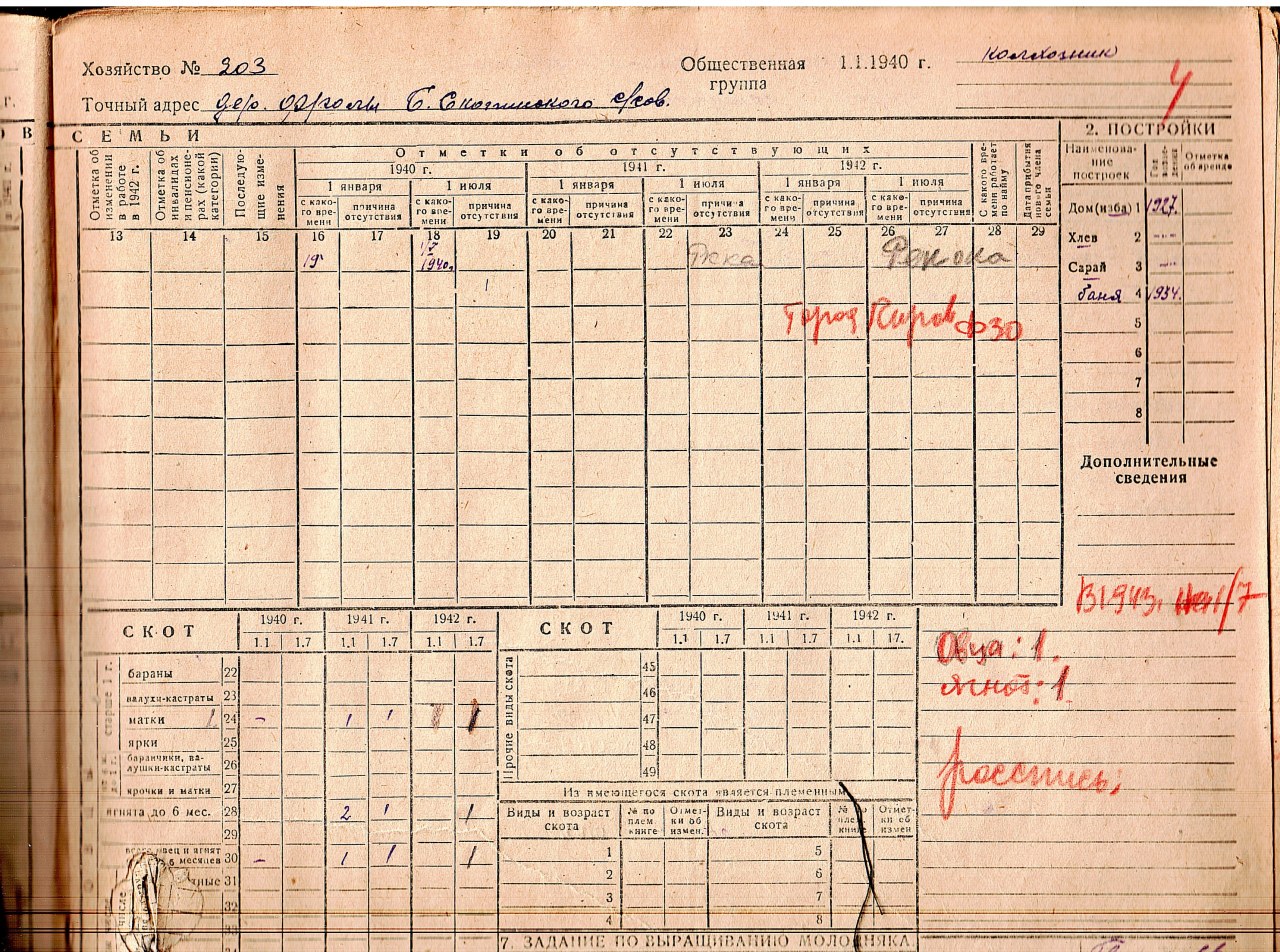 Хозяйство № 203
Общественная группа 1.1.1940 г. колхозник
4
Точный адрес дер. Фролы Б. сов.
В СЕМЬИ
Отметка об изменении в работе в 1942 г.
Отметка об инвалидах и пенсионерах (какой категории)
Последующие изменения
Отметки об отсутствующих
1940 г. 1941 г. 1942 г.
1 января 1 июля 1 января 1 июля 1 января 1 июля
с какого времени причина отсутствия с какого времени причина отсутствия с какого времени причина отсутствия с какого времени причина отсутствия с какого времени причина отсутствия с какого времени причина отсутствия
С какого времени работает по найму
Дата прибытия нового члена семьи
13 14 15 16 17 18 19 20 21 22 23 24 25 26 27 28 29
19 17 1940г. Ркка
Город Киров ФЗО
2. ПОСТРОЙКИ
Наименование построек
Отметка об аренде
Дом (изба) 1 1927.
Хлев 2 -"-
Сарай 3 -"-
баня 4 1934.
5
6
7
8
Дополнительные сведения
В 1943г. на 1/7
Овца: 1.
Ягнят: 1
роспись:
СКОТ
1940 г. 1941 г. 1942 г.
1.1 1.7 1.1 1.7 1.1 1.7
старше 1 г.
бараны 22
валухи-кастраты 23
матки 24 - 1 1 1 1
ярки 25
баранчики, валушки-кастраты 26
ярочки и матки 27
ягнята до 6 мес. 28 2 1 1
29
всего овец и ягнят 6 месяцев 30 - 1 1 1
31
32
числе
СКОТ
1940 г. 1941 г. 1942 г.
1.1 1.7 1.1 1.7 1.1 17.
Прочие виды скота
45
46
47
48
49
Из имеющегося скота является племенным
Виды и возраст скота № по плем. книге Отметки об измен. Виды и возраст скота № по плем. книге Отметки об измен
1 5
2 6
3 7
4 8
7. ЗАДАНИЕ ПО ВЫРАЩИВАНИЮ МОЛОДНЯКА